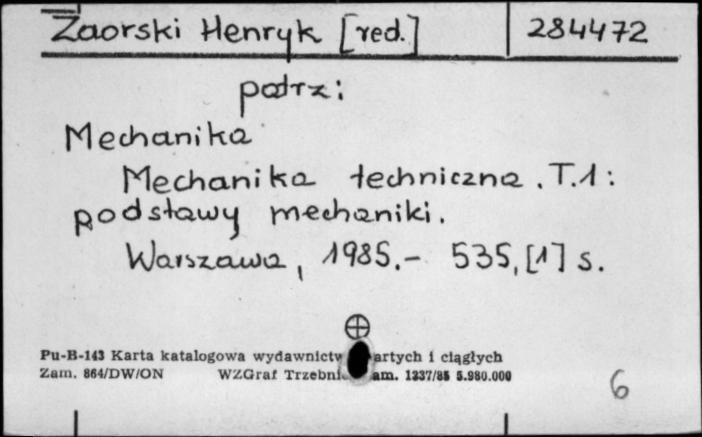 Zaorski Henryk [red.] 284472
patrz:
Mechanika
Mechanika techniczna. T.1:
podstawy mechaniki.
Warszawa, 1985.- 535, [1] s.
Pu-B-143 Karta katalogowa wydawnictw artych i ciągłych
Zam. 864/DW/ON WZGraf Trzebni am. 1337/85 5.980.000
6